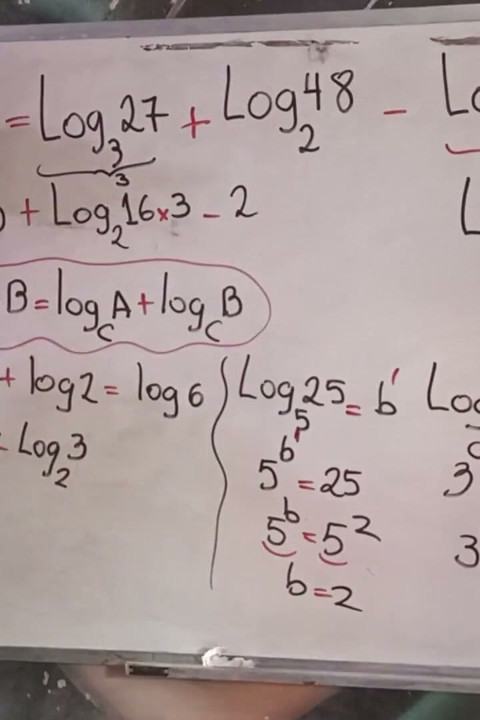 = Log₃27 + Log₂48 - Lo
3
+ Log₂16×3 - 2
L
B = log_C A + log_C B
+ log2 = log6
Log₂3
Log₅25 = b'
5^b' = 25
5^b = 5²
b = 2
Log
3
3